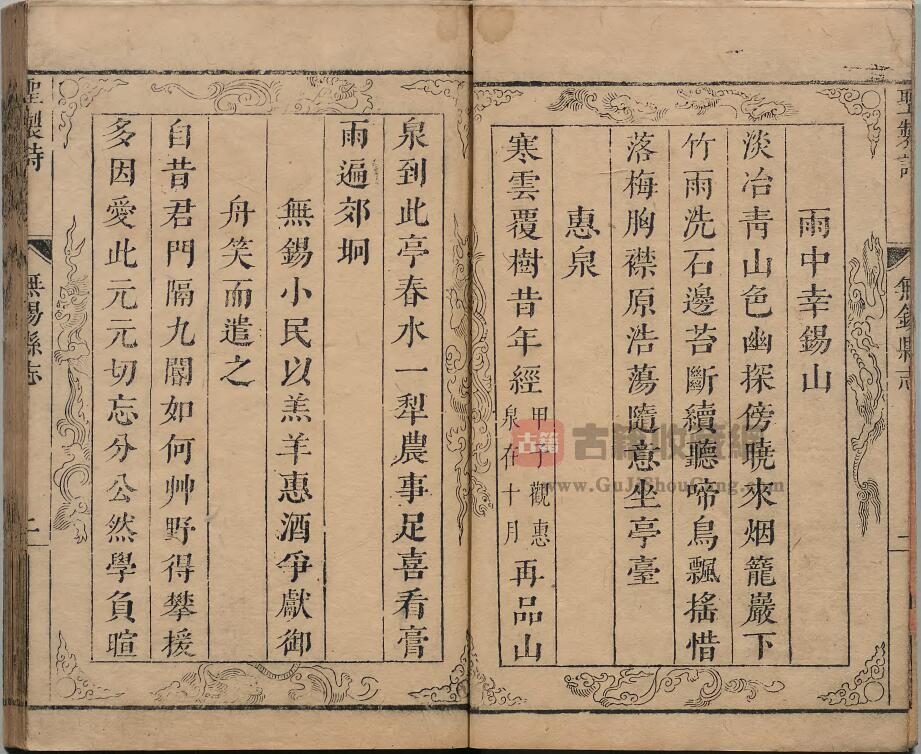 雨中幸錫山
淡冶青山色幽探傍曉來烟籠巖下
竹雨洗石邊苔斷續聽啼鳥飄搖惜
落梅胸襟原浩蕩隨意坐亭臺
惠泉
寒雲覆樹昔年經甲子觀惠泉在十月再品山
泉到此亭春水一犁農事足喜看膏
雨遍郊坰
無錫小民以羔羊惠酒爭獻御
舟笑而遣之
自昔君門隔九閽如何艸野得攀援
多因愛此元元切忘分公然學負暄
聖製詩
無錫縣志
聖製詩
無錫縣志
古籍
古籍收藏網
www.GuJiShouCang.com